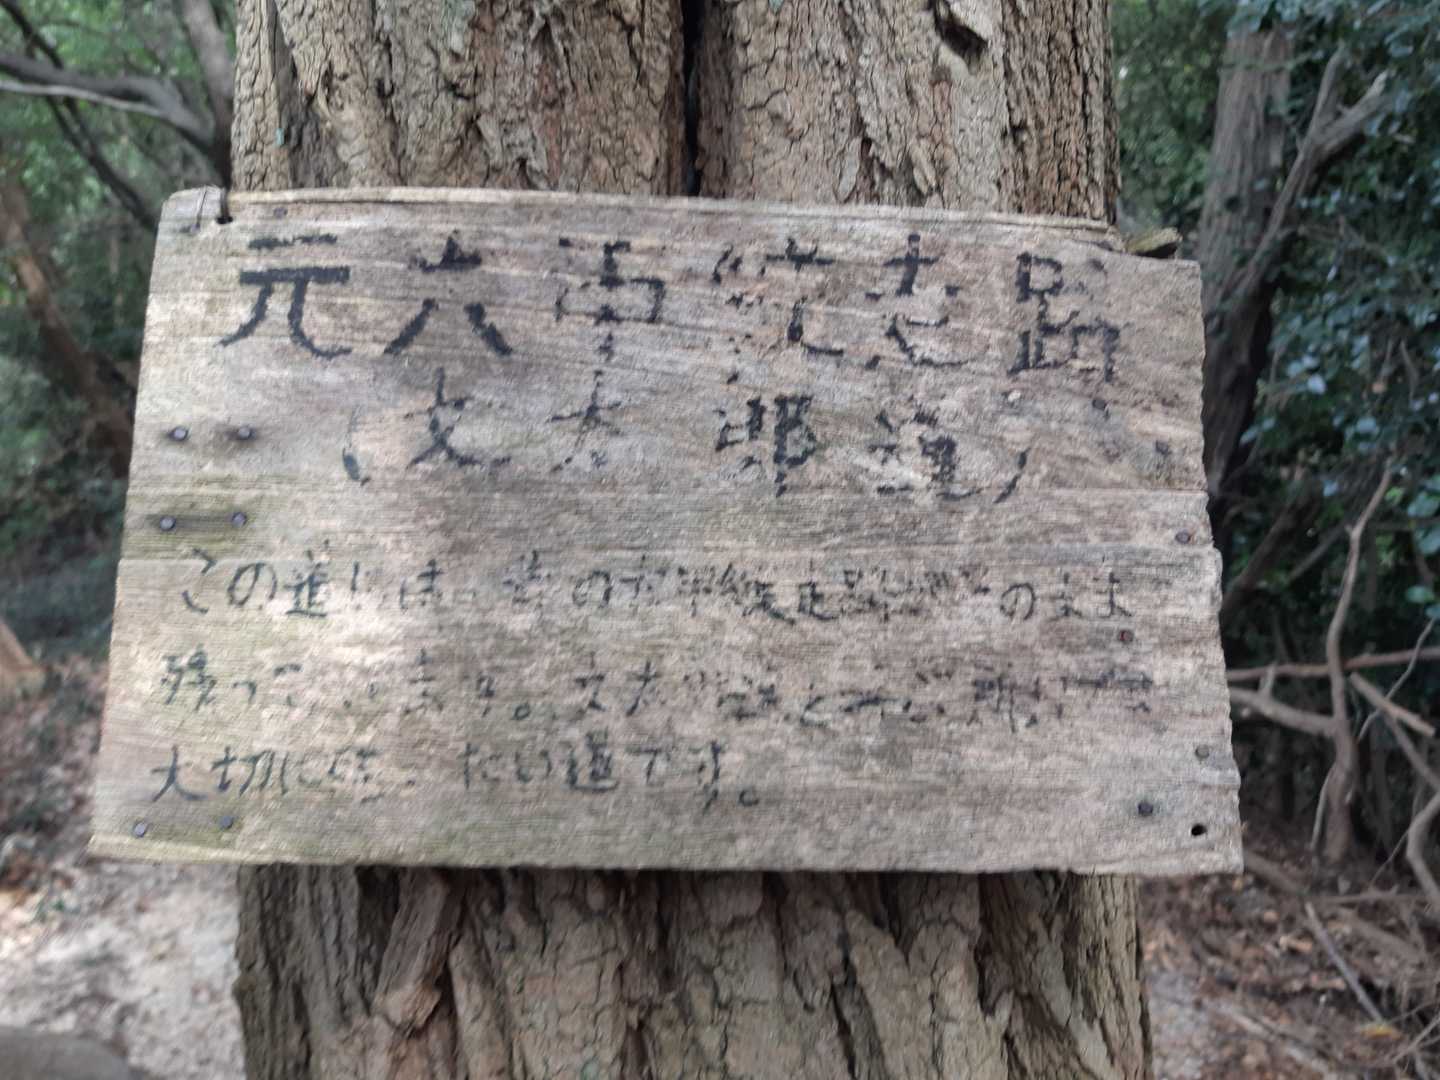 元六甲縦走路
(文太郎道)
この道は 昔の六甲縦走路がそのまま
残っています。文太郎道と
大切に たい道です。